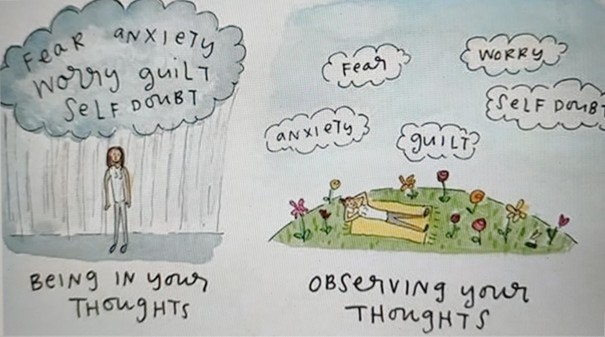 FEAR ANXIETY
WORRY GUILT
SELF DOUBT
BEING IN YOUR
THOUGHTS
FEAR
WORRY
SELF DOUBT
ANXIETY
GUILT
OBSERVING YOUR
THOUGHTS